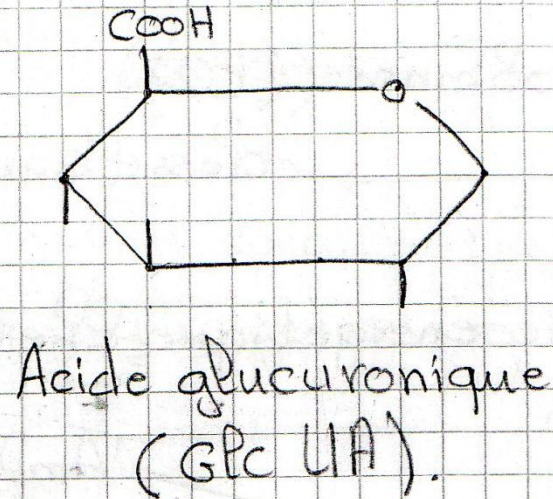 COOH
O
Acide glucuronique
(Glc UA).